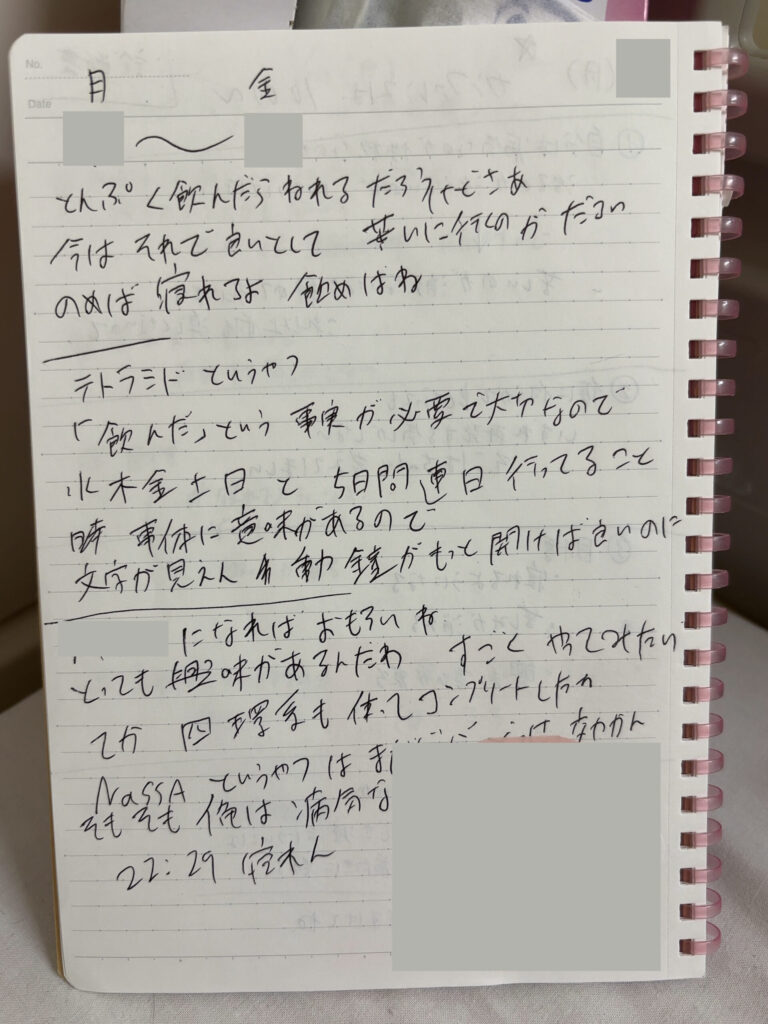 No.
Date
月 金
〜
とんぷく飲んだら ねれる だろうけどさあ
今は それで良いとして 薬いに行くのが だるい
のめば 寝れるよ 飲めばね
テトラミド というやつ
「飲んだ」という 事実が必要で大切なので
水木金土日 と 5日間連日 行ってること
時 事体に意味があるので
文字が見えん 自動 鐘がもっと 開けば良いのに
になれば おもろいね
とっても 興味があるんだわ すごく やってみたい
てか 四環系も使ってコンプリートしたか
NaSSA というやつは ま
そもそも 俺は 病気な
22:29 寝れん